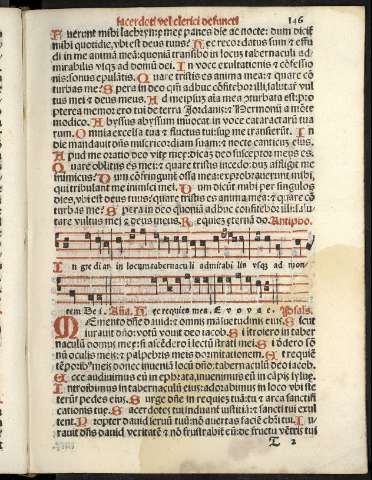 sacerdoti vel clerici defuncti 146
Fuerunt mihi lachryme mee panes die ac nocte: dum dicit̃
mihi quotidie, vbi est deus tuus? Hec recordatus sum & effu
di in me animã meã: quoniã transibo in locus tabernaculi ad
mirabilis vsq; ad domũ dei. In voce exultationis & cõfessio
nis: sonus epulãtis. Quare tristis es anima mea: & quare cõ
turbas me? Spera in deo qm̃ adhuc cõfitebor illi: salutar̃ vul
tus mei & deus meus. Ad meipsuz aĩa mea pturbata est: pro
pterea memor ero tui de terra Jordanis: & Hermonij a mõte
modico. Abyssus abyssum inuocat in voce cataractarũ tua
rum. Omnia excelsa tua & fluctus tui: sup me transierũt. In
die mandauit dñs misericordiam suam: & nocte canticuz eius.
Apud me oratio deo vite mee: dicaz deo susceptor meus es.
Quare oblitus es mei: & quare tristis incedo: duz affligit me
inimicus? Dum cõfringunt̃ ossa mea: exprobrauerunt mihi,
qui tribulant me inimici mei. Dum dicũt mihi per singulos
dies, vbi est deus tuus: quare tristis es anima mea: & quare cõ
turbas me? Spera in deo quoniã adhuc confitebor illi: salu
tare vultus mei & deus meus. Requiez eternã do. Antipho.
In gre di ar in locum taberna cu li admirabi lis vsq; ad mon
tem De i. Aña. Hec requies mea. Evovae. Psals.
MEmento dñe dauid: & omnis mãsuetudinis eius. Sicut
iurauit dño: votũ vouit deo iacob. Si itroiero in taber
naculũ domus mee: si ascẽdero i lectũ strati mei. Si dedero sõ
nũ oculis meis: & palpebris meis dormitationem. Et requiẽ
tẽporib⁹ meis donec inueniã locũ dño: tabernaculũ deo iacob.
Ecce audiuimus eũ in ephrata, inuenimus eũ in cãpis sylue.
Introibimus in tabernaculũ eius: adorabimus in loco vbi ste
terũt pedes eius. Surge dñe in requiez tuã: tu & arca sanctifi
cationis tue. Sacerdotes tui induant̃ iustitiã: & sancti tui exul
tent. Propter dauid seruũ tuũ: nõ auertas faciẽ chr̃i tui. Iu-
rauit dñs dauid veritatẽ & nõ frustrabit̃ eũ: de fructu vẽtris tui
T 2